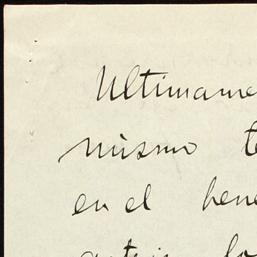 Ultimame
mismo te
en el bene